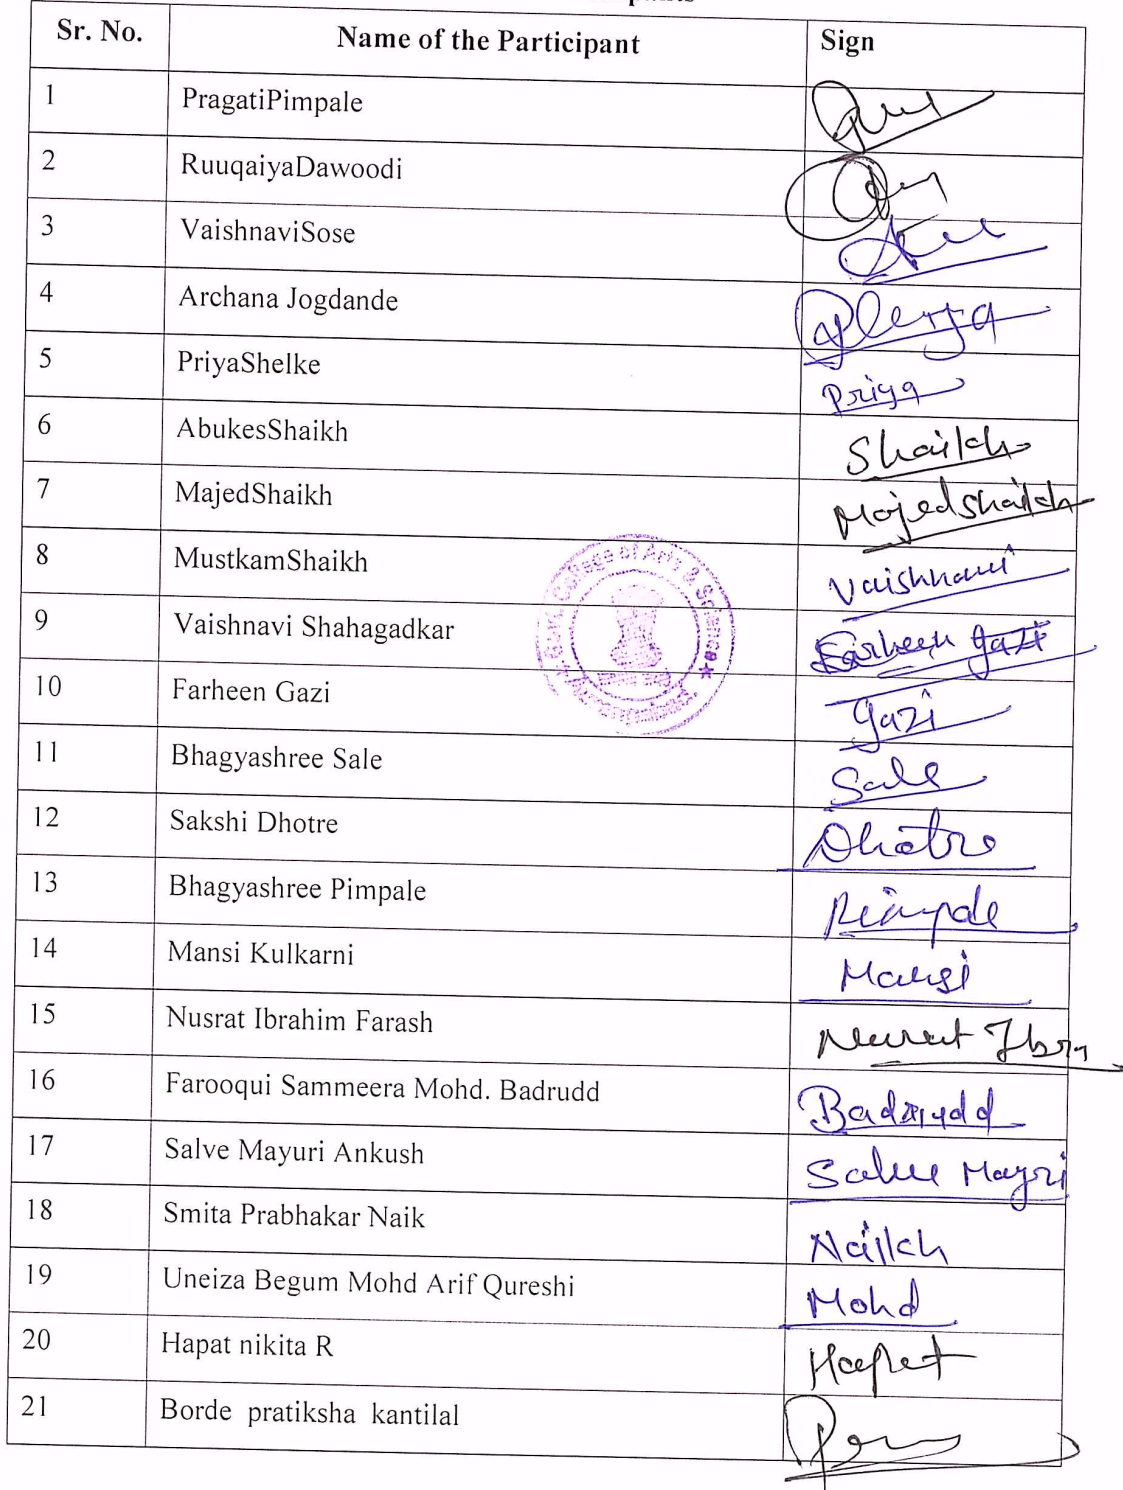 Sr. No. Name of the Participant Sign
1 PragatiPimpale
2 RuuqaiyaDawoodi
3 VaishnaviSose
4 Archana Jogdande
5 PriyaShelke Priya
6 AbukesShaikh Shaikh
7 MajedShaikh Majed Shaikh
8 MustkamShaikh Vaishnavi
9 Vaishnavi Shahagadkar Farheen Gazi
10 Farheen Gazi Gazi
11 Bhagyashree Sale Sale
12 Sakshi Dhotre Dhotre
13 Bhagyashree Pimpale Pimpale
14 Mansi Kulkarni Mansi
15 Nusrat Ibrahim Farash Nusrat Ibra
16 Farooqui Sammeera Mohd. Badrudd Badrudd
17 Salve Mayuri Ankush Salve Mayri
18 Smita Prabhakar Naik Naikh
19 Uneiza Begum Mohd Arif Qureshi Mohd
20 Hapat nikita R Hapat
21 Borde pratiksha kantilal
College of Arts & Science